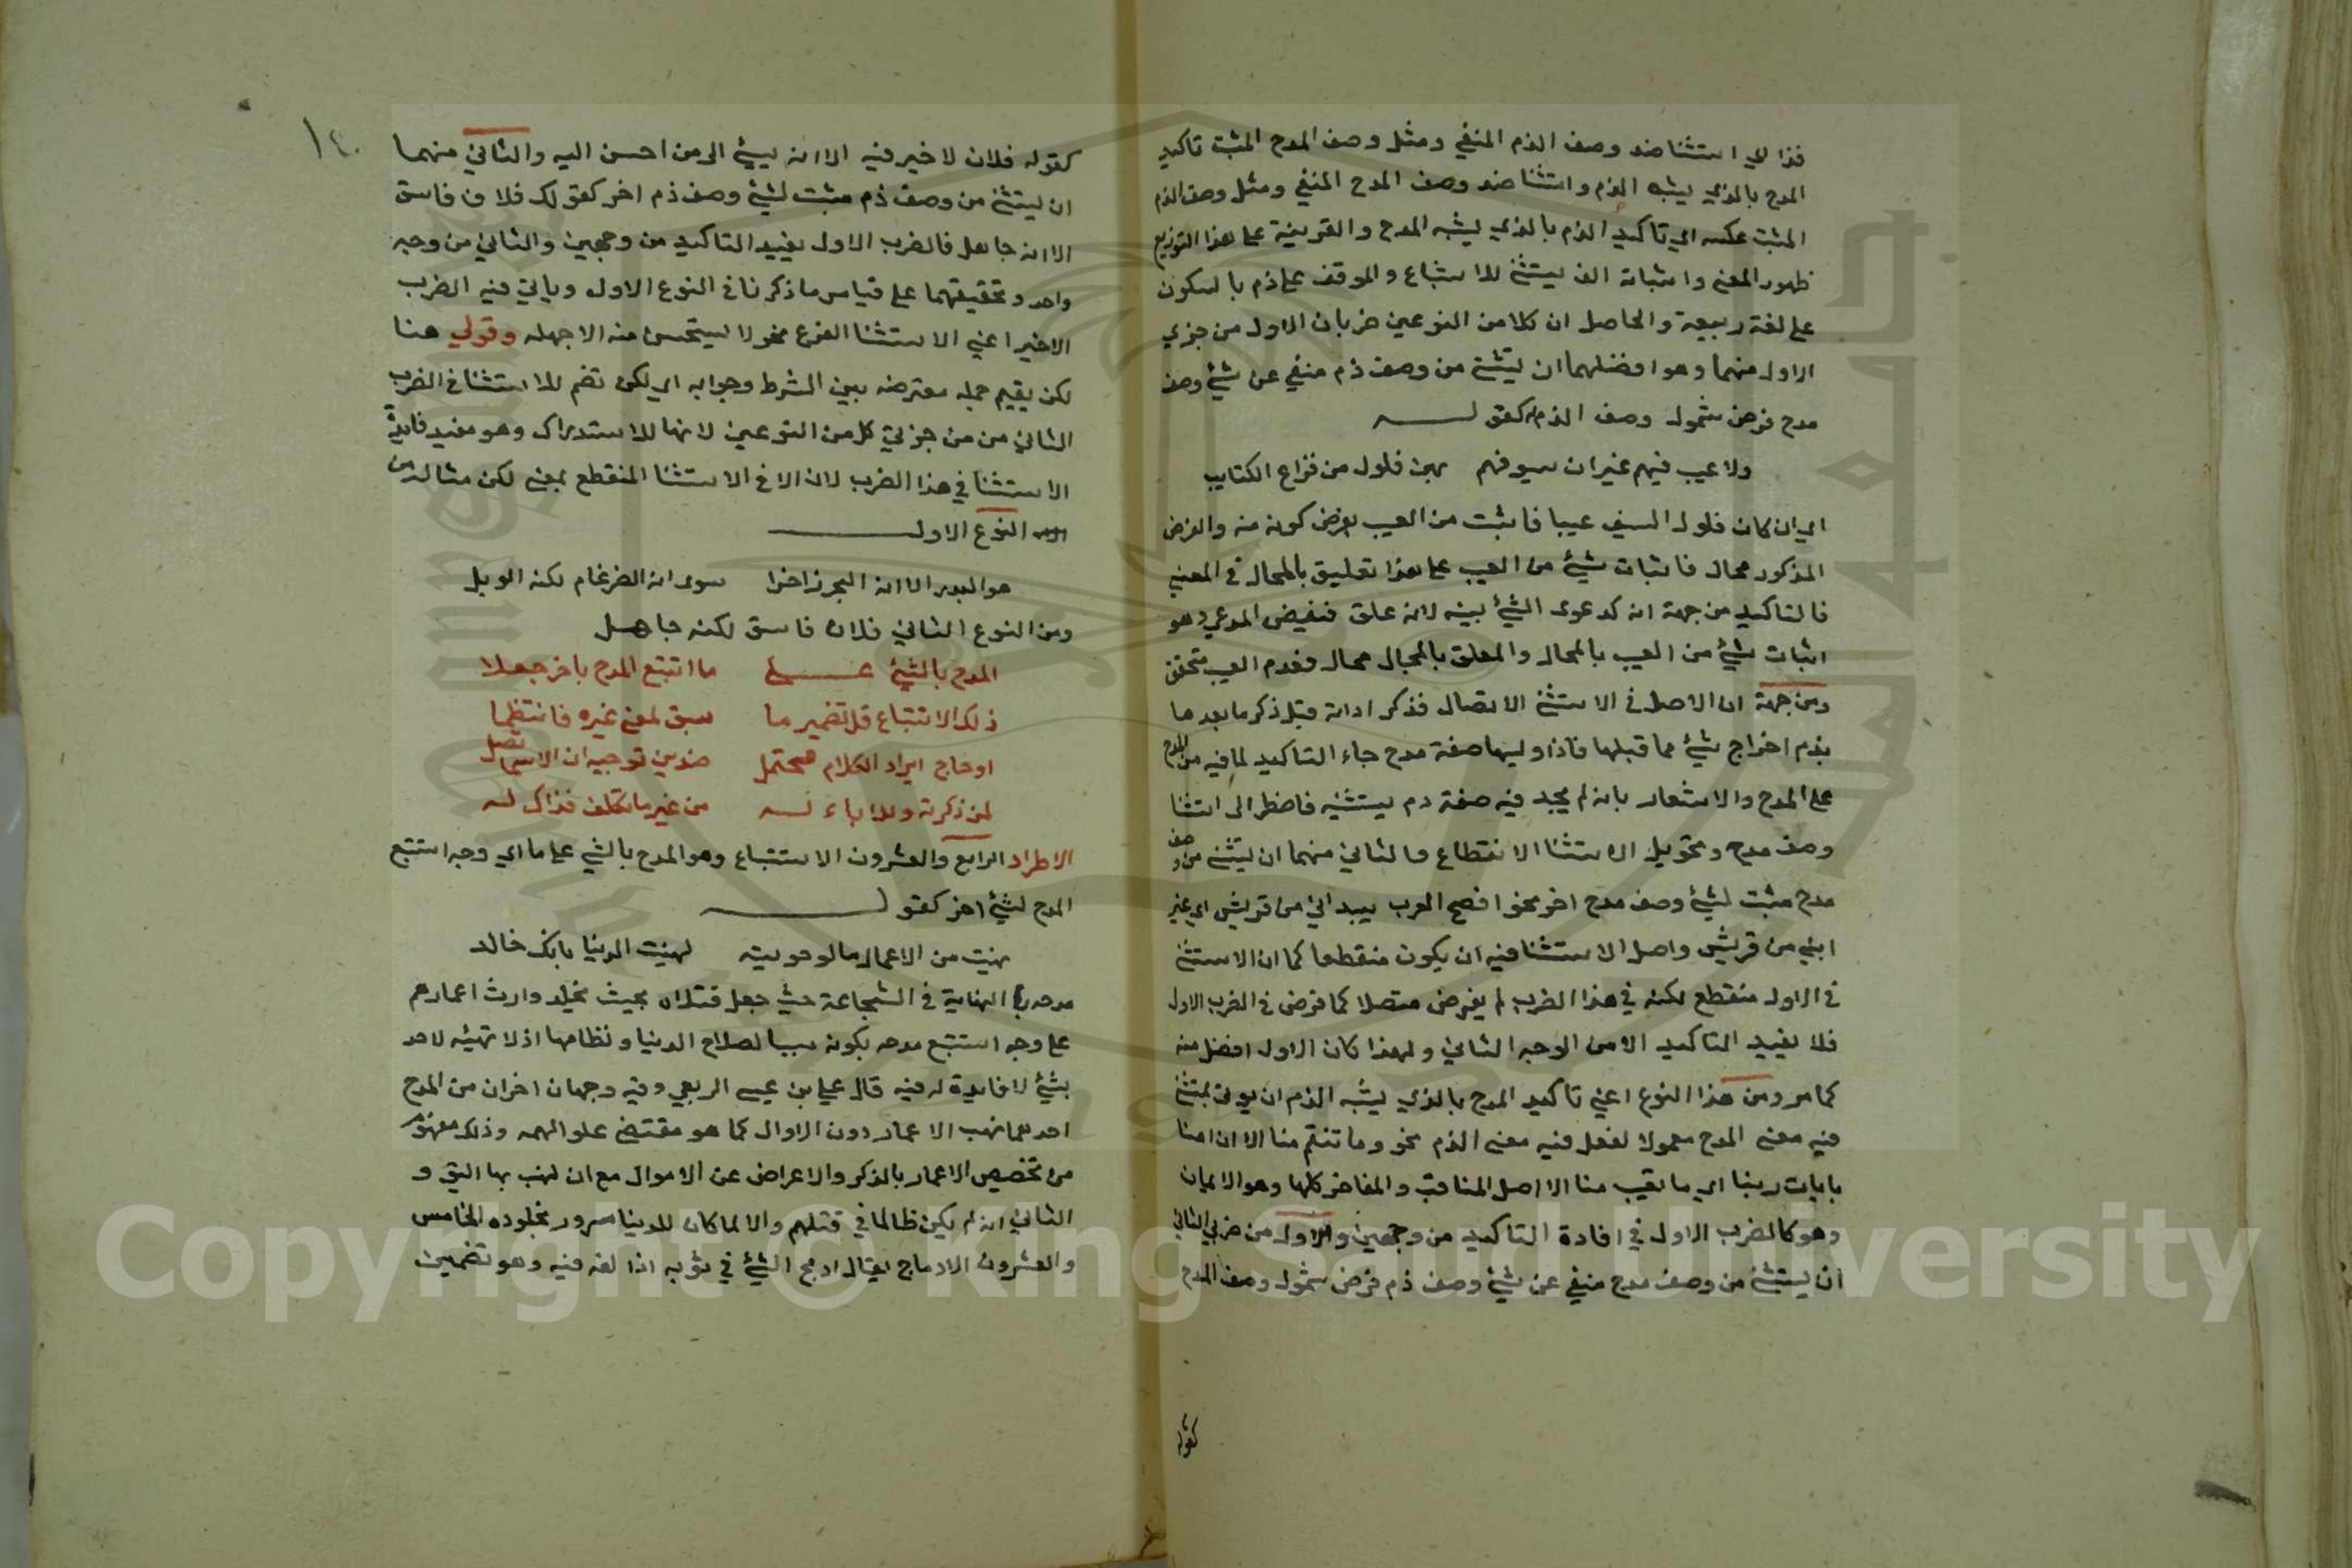 فذا لدي استثنا ضد وصف الذم المنفي ومثل وصف المدح المثبت تاكيد
المدح بالذي يشبه الذم واستثنا ضد وصف المدح المنفي ومثل وصف الذم
المثبت عكسه اي تاكيد الذم بالذي يشبه المدح والقرينة على هذا التوزيع
ظهور المعنى واثبات الف يستثنى للاشباع والموقف على ذم بالسكون
على لغة ربيعة والحاصل ان كلا من النوعين ضربان الاول من جزي
الاول منهما وهو افضلهما ان يستثنى من وصف ذم منفي عن شيء وصف
مدح فرض شمول وصف الذم كقوله
ولا عيب فيهم غير ان سيوفهم بهن فلول من قراع الكتايب
اي ان كان فلول السيف عيبا فاثبت من العيب بفرض كونه منه والفرض
المذكور محال فاثبات شيء من العيب على هذا تعليق بالمحال في المعنى
فالتاكيد من جهة انه كدعوى الشيء ببينة لانه علق نقيض المدعي وهو
اثبات شيء من العيب بالمحال والمعلق بالمحال محال فعدم العيب متحقق
ومن جهة ان الاصل في الاستثنى الاتصال فذكر اداته قبل ذكر ما بعدها
يوهم اخراج شيء مما قبلها فاذا وليها صفة مدح جاء التاكيد لما فيه من المدح
على المدح والاشعار بانه لم يجد فيه صفة ذم يستثنيه فاضطر الى استثنا
وصف مدح وتحويل الاستثنا الانقطاع والثاني منهما ان يستثنى من وصف
مدح مثبت لشيء وصف مدح اخر نحو افصح العرب بيد اني من قريش اي غير
اني من قريش واصل الاستثنا فيه ان يكون منقطعا كما ان الاستثنى
في الاول منقطع لكنه في هذا الضرب لم يفرض متصلا كما فرض في الضرب الاول
فلا يفيد التاكيد الا من الوجه الثاني ولهذا كان الاول افضل منه
كما مر ومن هذا النوع اعني تاكيد المدح بالذي يشبه الذم ان يوتى بمستثنى
فيه معنى المدح معمولا لفعل فيه معنى الذم نحو وما تنقم منا الا ان امنا
بايات ربنا اي ما تعيب منا الا اصل المناقب والمفاخر كلها وهو الايمان
وهو كالضرب الاول في افادة التاكيد من وجهين والاول من ضربي الثاني
ان يستثنى من وصف مدح منفي عن شيء وصف ذم فرض شمول وصف المدح
كقوله
١٤٠
كقوله فلان لا خير فيه الا انه يسيء الى من احسن اليه والثاني منهما
ان يستثنى من وصف ذم مثبت لشيء وصف ذم اخر كقولك فلان فاسق
الا انه جاهل فالضرب الاول يفيد التاكيد من وجهين والثاني من وجه
واحد وتحقيقهما على قياس ما ذكرنا في النوع الاول وياتي فيه الضرب
الاخير اعني الاستثنا المفرغ نحو لا يستحسن منه الا جهله وقولي هنا
لكن يقيم جملة معترضة بين الشرط وجوابه اي لكن تضم للاستثنا في الضرب
الثاني من من جزئي كل من النوعين لانها للاستدراك وهو مفيد فايدة
الاستثنا في هذا الضرب لان الا في الاستثنا المنقطع بمعنى لكن مثاله من
النوع الاول
هو البدر الا انه البحر زاخرا سوى انه الضرغام لكنه الوبل
ومن النوع الثاني فلان فاسق لكنه جاهل
المدح بالشيء على ما استتبع المدح باخر جعلا
ذلك الاستتباع قل تضمير ما سبق لمعنى غيره فانتظما
ادماج ايراد الكلام محتمل ضدين توجيه ان الاسما تصل
لمن ذكرته وللاباء له من غير ما تكلف فذاك له
الاطراد الرابع والعشرون الاستتباع وهو المدح بالشيء على ما اي وجه استتبع
المدح لشيء اخر كقوله
نهبت من الاعمار ما لو حويته لهنيت الدنيا بانك خالد
مدحه بالنهاية في الشجاعة حيث جعل قتلاه بحيث يخلد وارث اعمارهم
على وجه استتبع مدحه بكونه سببا لصلاح الدنيا ونظامها اذ لا تهنئة لاحد
بشيء لا فايدة له فيه قال علي بن عيسى الربعي وفيه وجهان اخران من المدح
احدهما نهب الاعمار دون الاموال كما هو مقتضى علو الهمه وذلك مفهوم
من تخصيص الاعمار بالذكر والاعراض عن الاموال مع ان النهب بها اليق و
الثاني انه لم يكن ظالما في قتلهم والا لما كان للدنيا سرور بخلوده الخامس
والعشرون الادماج يقال ادمج الشيء في ثوبه اذا لفه فيه وهو تضمين
Copyright © King Saud University